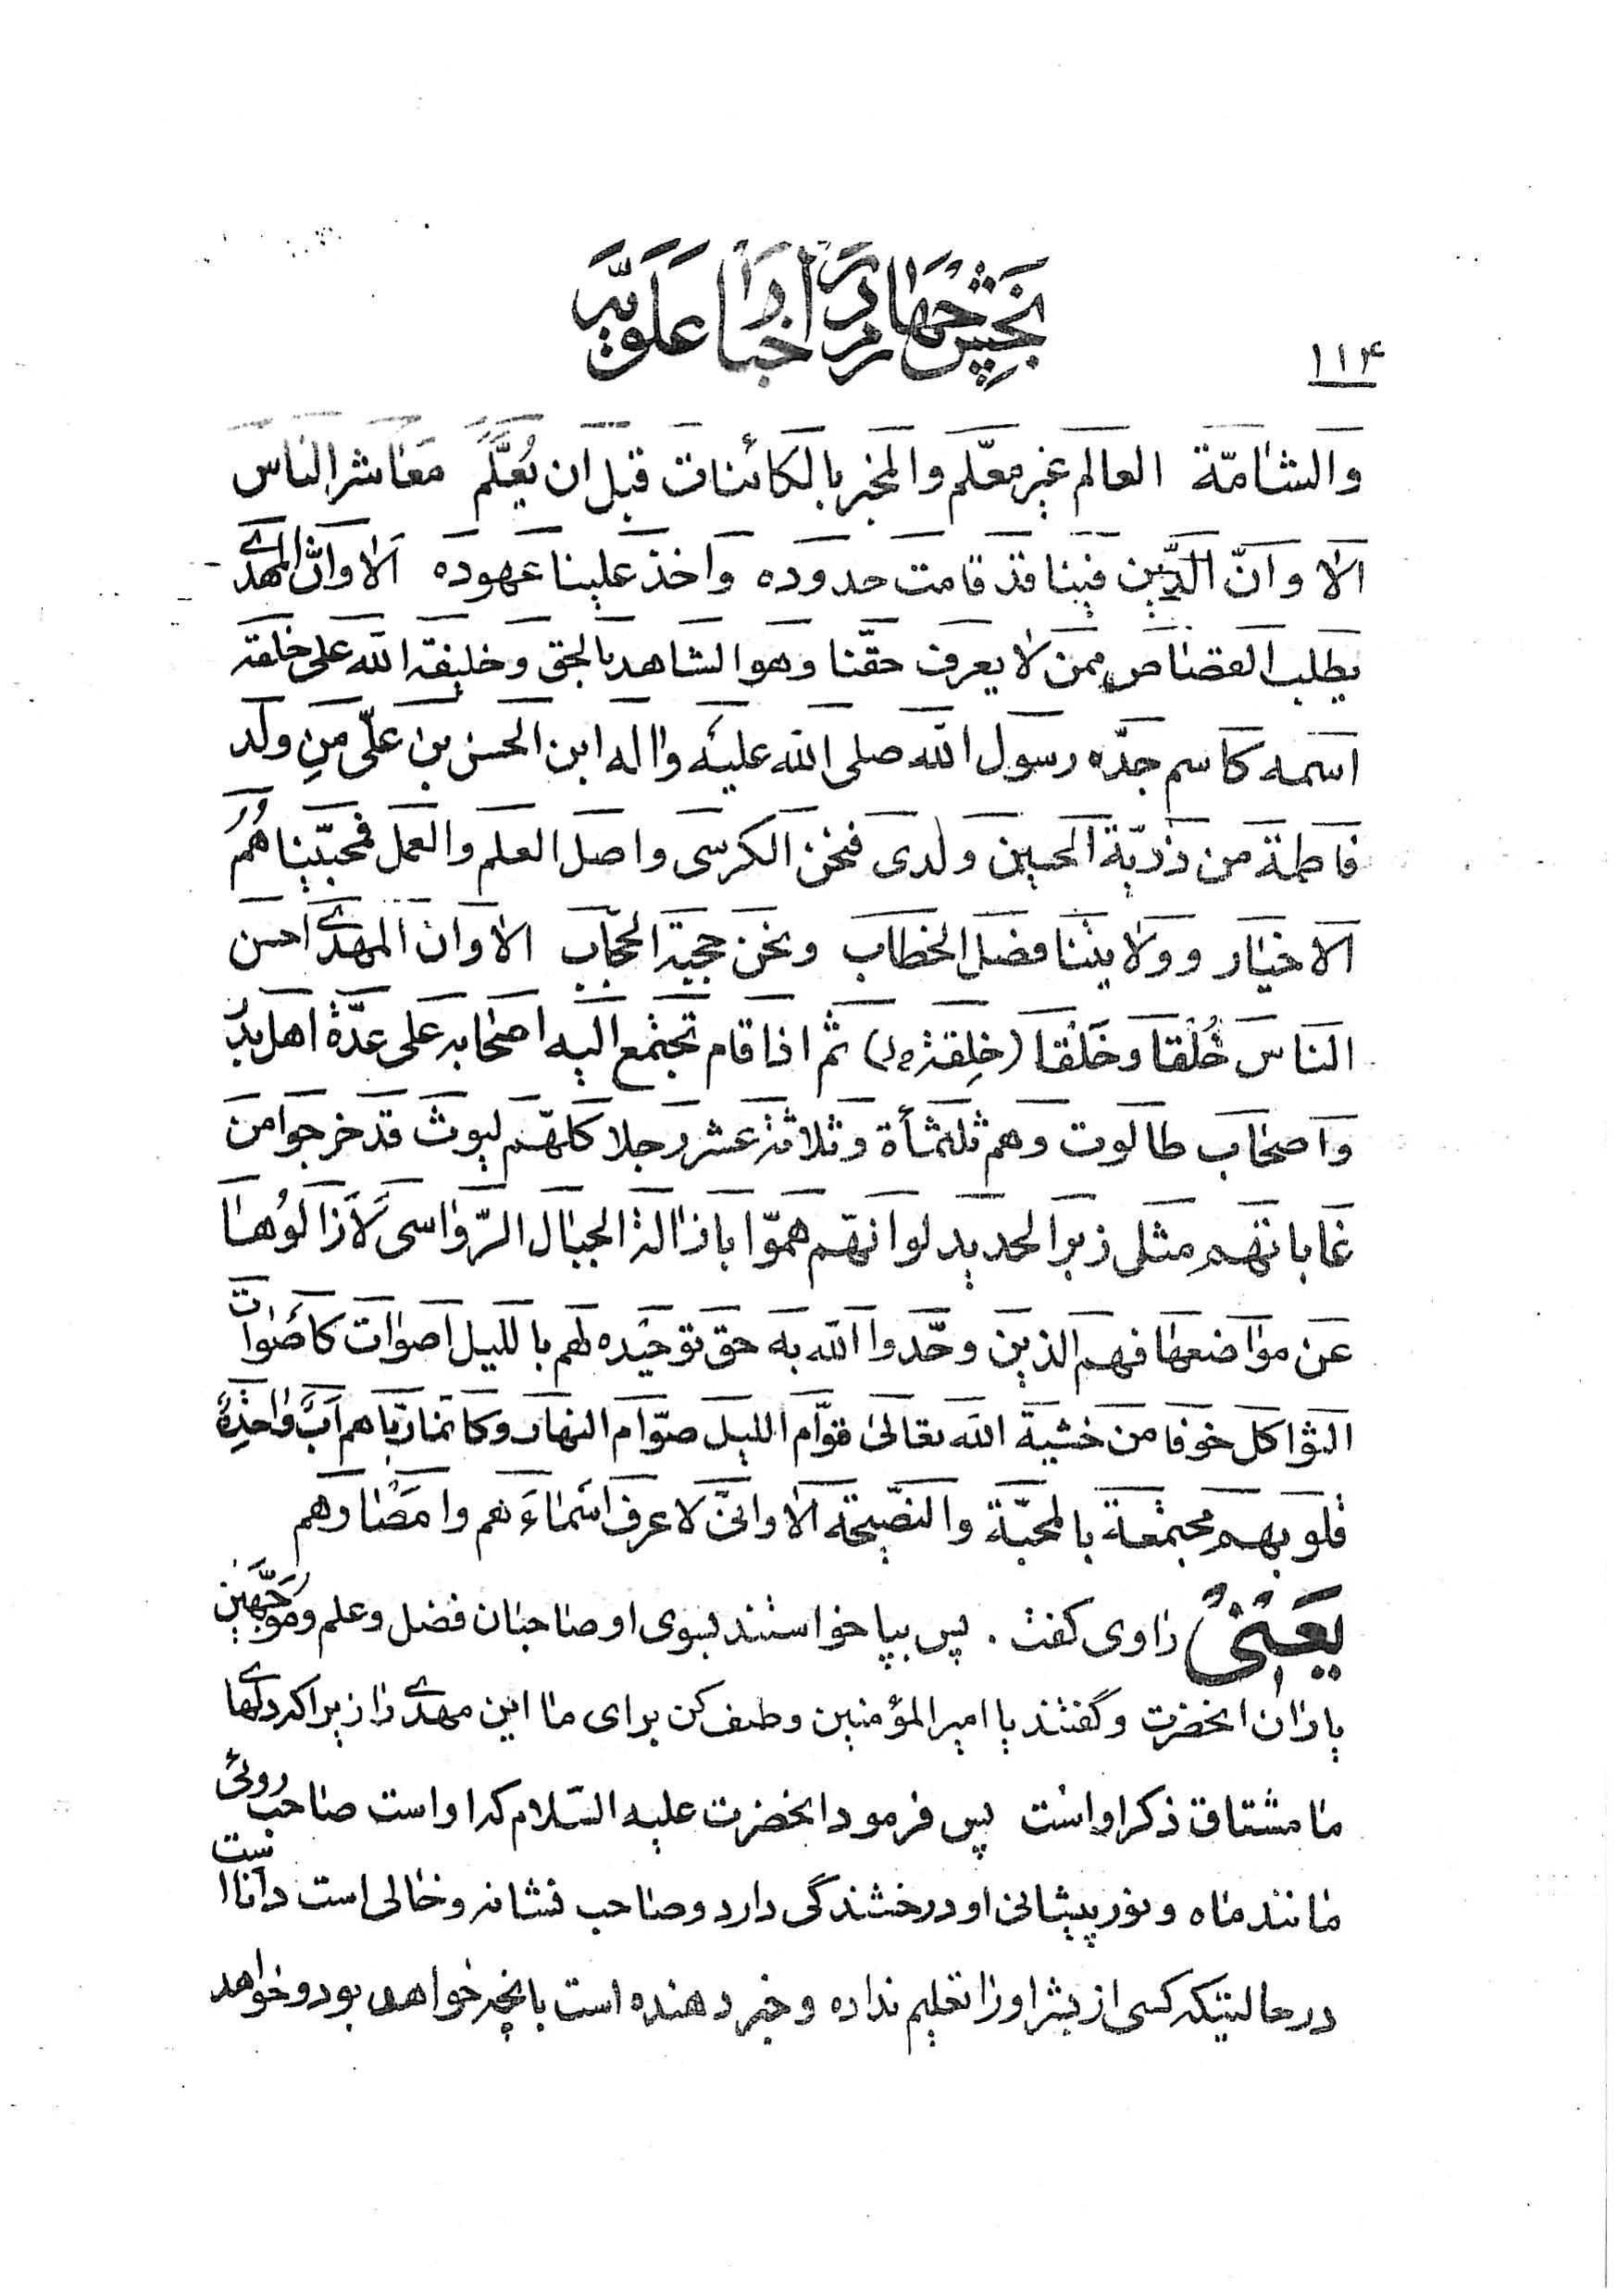 بخش چهارم در اخبار علویه
۱۱۴
والشامّة العالم غیر معلّم والمخبر بالکائنات قبل ان یُعَلَّمَ مَعاشر الناس
الا وانّ الدّین فینا قد قامت حدوده واخذ علینا عهوده الا وانّ المهدی
یطلب القصاص ممن لا یعرف حقّنا وهو الشاهد بالحق وخلیفة الله علی خلقه
اسمه کاسم جدّه رسول الله صلی الله علیه واله ابن الحسن بن علّی من ولد
فاطمة من ذرّیّة الحسین ولدی فنحن الکرسی واصل العلم والعمل فمحبّینا هُمُ
الاخیار وولایتنا فصل الخطاب ونحن حجبة الحجّاب الا وان المهدی احسن
الناس خُلْقا وخَلْقا (خِلقة خ ل) ثم اذا قام تجتمع الیه اصحابه علی عدّة اهل بدر
واصحاب طالوت وهم ثلثمأة وثلاثة عشر رجلا کلهّم لیوث قد خرجوا من
غاباتهم مثل زبر الحدید لو انهّم همّوا بازالة الجبال الرّواسی لَاَزالُوها
عن مواضعها فهم الذین وحّدوا الله به حق توحیده لهم باللیل اصوات کاَصْوات
الثواکل خوفا من خشیة الله تعالی قوّام اللیل صوّام النهار وکانما ربّاهم اَبٌ واحِدٌ
قلوبهم مجتمعة بالمحبّة والنصّیحة الا وانّی لاعرف اَسْماءَهم وامصارهم
یَعنی راوی کفت . پس بپا خواستند بسوی او صاحبان فضل وعلم وموجّهین
یاران انحضرت و گفتند یا امیر المؤمنین وصف کن برای ما این مهدی را زیرا که دلهای
ما مشتاق ذکر اواست پس فرمود انحضرت علیه السّلام که او است صاحب روئی
مانند ماه و نور پیشانی او درخشندگی دارد وصاحب نشانه وخالی است دانا است
درحالتیکه کسی از بشر او را تعلیم نداده وخبر دهنده است بانچه خواهد بود وخواهد